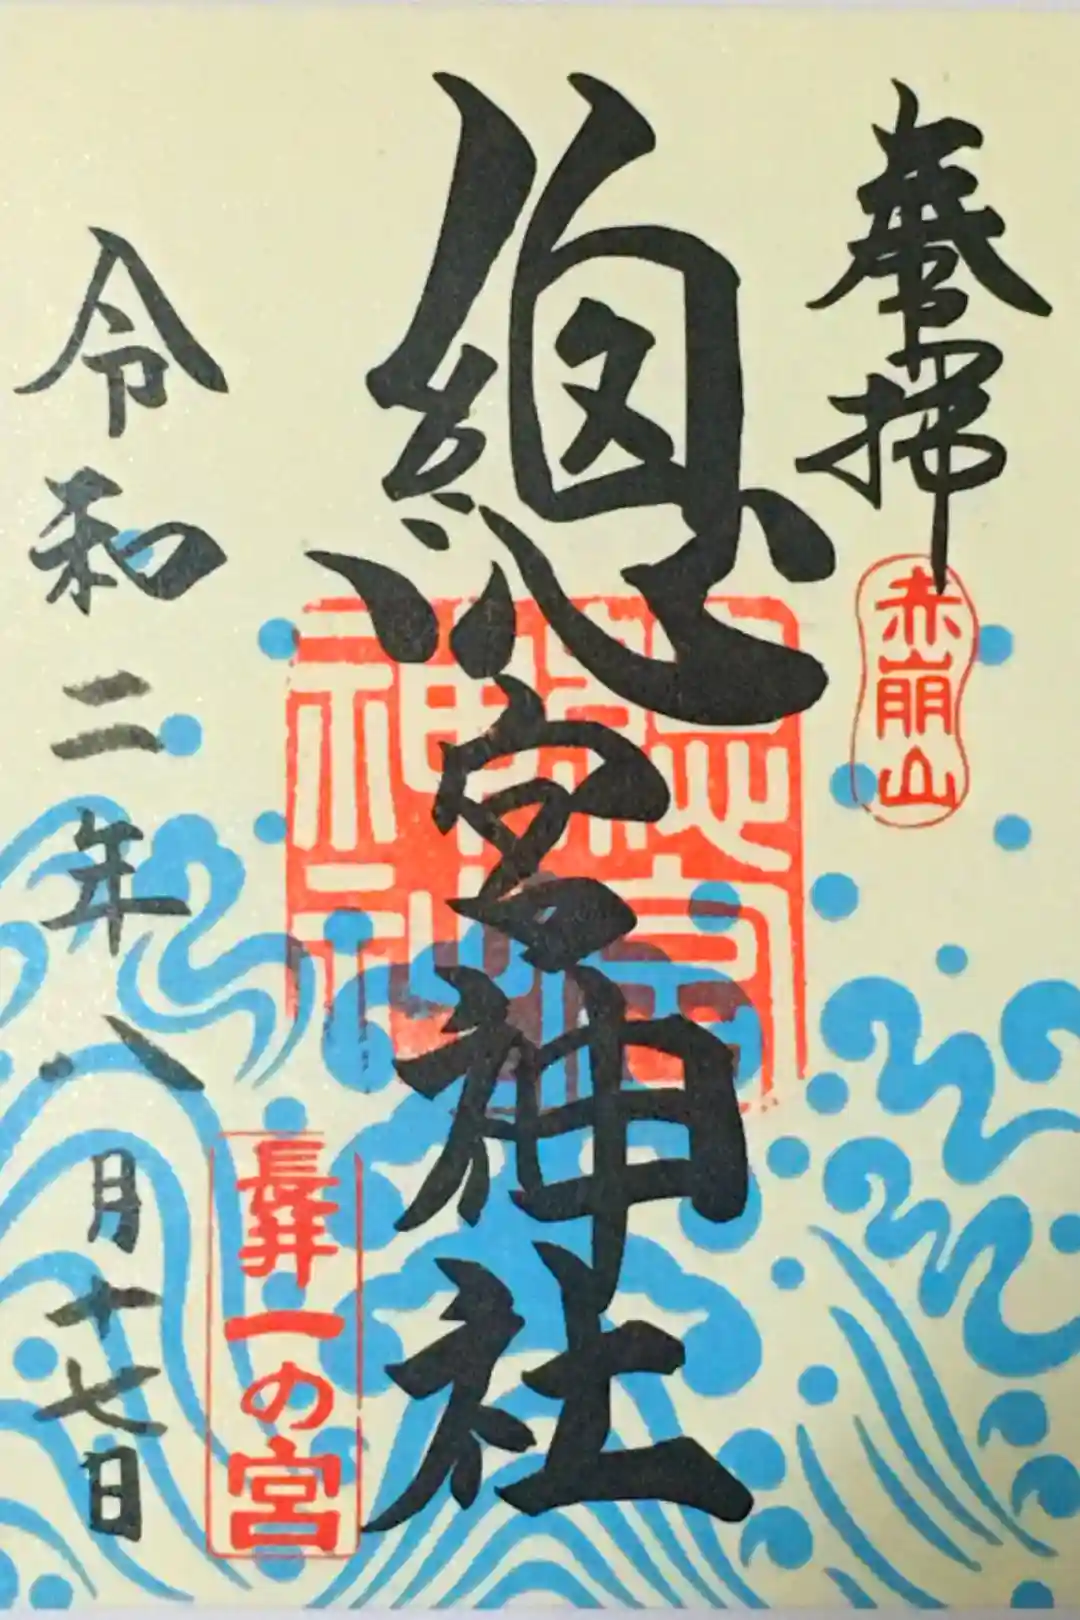 奉拝
赤崩山
總宮神社
總宮神社
長井一の宮
令和二年八月十七日